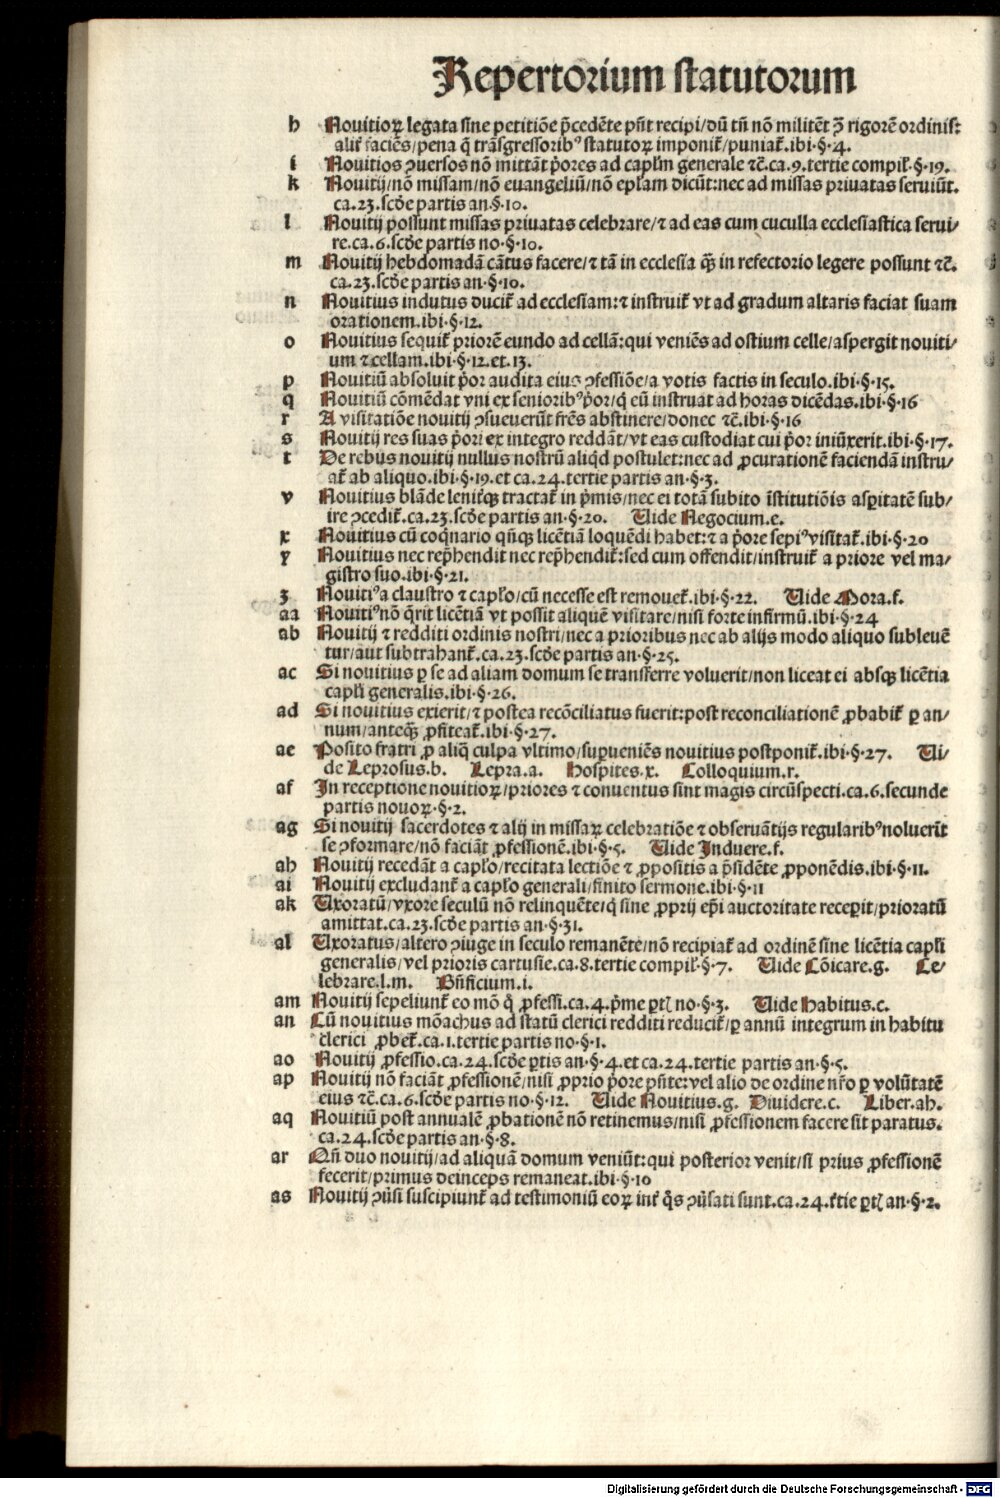 Repertorium statutorum
h Nouitioꝝ legata sine petitiōe p̄cedēte pn̄t recipi/dū tn̄ nō militēt ꝯ̄ rigorē ordinis:
alit̕ faciēs/pena q̄ trāsgressoribꝰ statutoꝝ imponit̕/puniat̕.ibi·§·4.
i Nouitios ꝯuersos nō mittāt p̄ores ad caplm̄ generale ⁊c̄.ca.9.tertie compil̕·§·19.
k Nouitij/nō missam/nō euangeliū/nō epl̄am dicūt:nec ad missas priuatas seruiūt.
ca.23.scd̄e partis an.§·10.
l Nouitij possunt missas priuatas celebrare/⁊ ad eas cum cuculla ecclesiastica serui/
re.ca.6.scd̄e partis no·§·10.
m Nouitij hebdomadā cātus facere/⁊ tā in ecclesia qꝫ̄ in refectorio legere possunt ⁊c̄.
ca.23.scd̄e partis an·§·10.
n Nouitius indutus ducit̕ ad ecclesiam:⁊ instruit̕ vt ad gradum altaris faciat suam
orationem.ibi·§·12.
o Nouitius sequit̕ priorē eundo ad cellā:qui veniēs ad ostium celle/aspergit nouiti/
um ⁊ cellam.ibi·§·12.et.13.
p Nouitiū absoluit p̄or audita eius ꝯfessiōe/a votis factis in seculo.ibi·§·15.
q Nouitiū cōmēdat vni ex senioribꝰ p̄or/q̇ eū instruat ad horas dicēdas.ibi·§·16
r A visitatiōe nouitij ꝯsueuerūt fr̄es abstinere/donec ⁊c̄.ibi·§·16
s Nouitij res suas p̄ori ex integro reddāt/vt eas custodiat cui p̄or iniūxerit.ibi·§·17.
t De rebus nouitij nullus nostrū aliq̇d postulet:nec ad ꝓcurationē faciendā instru/
at̕ ab aliquo.ibi·§·19.et ca.24.tertie partis an·§·3.
v Nouitius blāde lenit̕qꝫ tractat̕ in p̄mis/nec ei totā subito īstitutiōis asꝑitatē sub/
ire ꝯcedit̕.ca.23.scd̄e partis an·§·20. Uide Negocium.e.
x Nouitius cū coq̇nario qn̄qꝫ licētiā loquēdi habet:⁊ a p̄ore sepiꝰ visitat̕.ibi·§·20
y Nouitius nec rep̄hendit nec rep̄hendit̕:sed cum offendit/instruit̕ a priore vel ma/
gistro suo.ibi·§·21.
z Nouitiꝰ a claustro ⁊ capl̄o/cū necesse est remouet̕.ibi·§·22. Uide Mora.f.
aa Nouitiꝰ nō q̄rit licētiā vt possit aliquē visitare/nisi forte infirmū.ibi·§·24
ab Nouitij ⁊ redditi ordinis nostri/nec a prioribus nec ab alijs modo aliquo subleuē
tur/aut subtrahant̕.ca.23.scd̄e partis an·§·25.
ac Si nouitius ꝑ se ad aliam domum se transferre voluerit/non liceat ei absqꝫ licētia
capl̄i generalis.ibi·§·26.
ad Si nouitius exierit/⁊ postea recōciliatus fuerit:post reconciliationē ꝓbabit̕ ꝑ an/
num/anteqꝫ̄ ꝓfiteat̕.ibi·§·27.
ae Posito fratri ꝓ aliq̄ culpa vltimo/suꝑueniēs nouitius postponit̕.ibi·§·27. Ui/
de Leprosus.b. Lepra.a. Hospites.x. Colloquium.r.
af In receptione nouitioꝝ/priores ⁊ conuentus sint magis circūspecti.ca.6.secunde
partis nouoꝝ·§·2.
ag Si nouitij sacerdotes ⁊ alij in missaꝝ celebratiōe ⁊ obseruātijs regularibꝰ noluerīt
se ꝯformare/nō faciāt ꝓfessionē.ibi·§·5. Uide Induere.f.
ah Nouitij recedāt a capl̄o/recitata lectiōe ⁊ ꝓpositis a p̄sidēte ꝓponēdis.ibi·§·11.
ai Nouitij excludant̕ a capl̄o generali/finito sermone.ibi·§·11
ak Uxoratū/vxore seculū nō relinquēte/q̇ sine ꝓprij ep̄i auctoritate receꝑit/prioratū
amittat.ca.23.scd̄e partis an·§·31.
al Uxoratus/altero ꝯiuge in seculo remanēte/nō recipiat̕ ad ordinē sine licētia capl̄i
generalis/vel prioris cartusie.ca.8.tertie compil̕·§·7. Uide Cōicare.g. Ce/
lebrare.l.m. Bn̄ficium.i.
am Nouitij sepeliunt̕ eo mō q̊ ꝓfessi.ca.4.p̄me ꝑtꝭ no·§·3. Uide Habitus.c.
an Cū nouitius mōachus ad statū clerici redditi reducit̕/ꝑ annū integrum in habitu
clerici ꝓbet̕.ca.1.tertie partis no·§·1.
ao Nouitij ꝓfessio.ca.24.scd̄e ꝑtis an·§·4.et ca.24.tertie partis an·§·5.
ap Nouitij nō faciāt ꝓfessionē/nisi ꝓprio p̄ore pn̄te:vel alio de ordine nr̄o ꝑ volūtatē
eius ⁊c̄.ca.6.scd̄e partis no·§·12. Uide Nouitius.g. Diuidere.c. Liber.ah.
aq Nouitiū post annualē ꝓbationē nō retinemus/nisi ꝓfessionem facere sit paratus.
ca.24.scd̄e partis an·§·8.
ar Qn̄ duo nouitij/ad aliquā domum veniūt:qui posterior venit/si prius ꝓfessionē
fecerit/primus deinceps remaneat.ibi·§·10
as Nouitij ꝯūsi suscipiunt̕ ad testimoniū eoꝝ int̕ q̊s ꝯūsati sunt.ca.24.t̕tie ꝑtꝭ an·§·2.
Digitalisierung gefördert durch die Deutsche Forschungsgemeinschaft - DFG